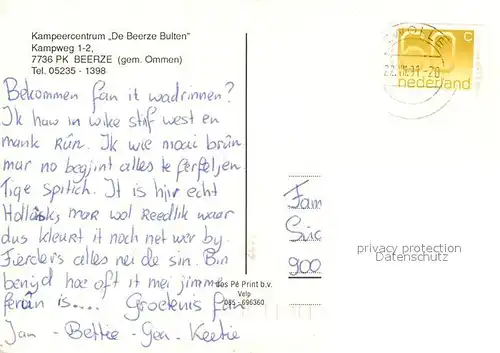 Kampeercentrum „De Beerze Bulten"
Kampweg 1-2,
7736 PK BEERZE (gem. Ommen)
Tel. 05235 - 1398
Bekommen fan it wadrinnen?
Ik haw in wike stiif west en
mank Rûn. Ik wie moai brûn
mar no begjint alles te ferfeljen.
Tige spitich. It is hjir echt
Hollâsk, mar wol Reedlik waar
dus kleurt it noch net wer by.
Fierders alles nei de sin. Bin
benijd hoe oft it mei jimme
ferûn is.... Groetenis fan
Jan - Bettie - Gea - Keetie
ZWOLLE
-20
50 C
nederland
Fam
900
privacy protection
Datenschutz
Dos Pé Print b.v.
Velp
085 - 696360